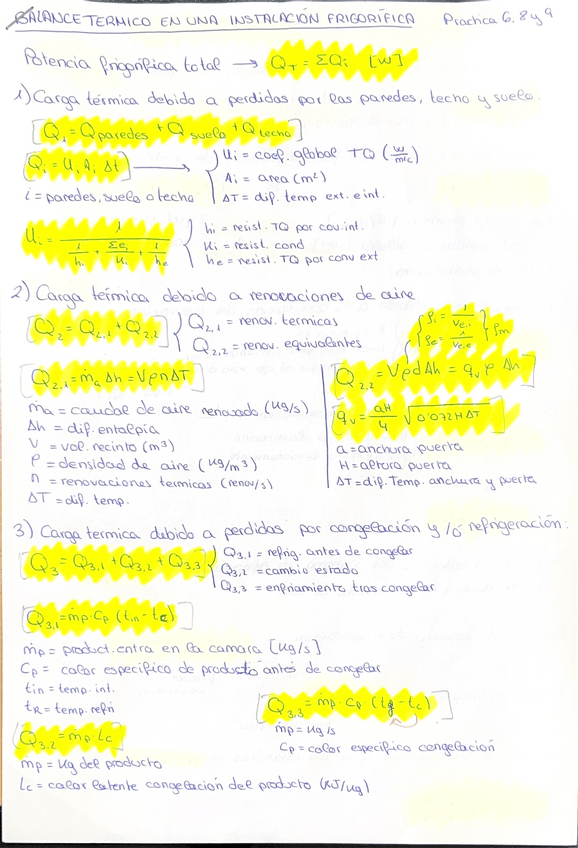 BALANCE TERMICO EN UNA INSTALACIÓN FRIGORÍFICA Practica 6, 8 y 9
Potencia frigorífica total → Q_T = ΣQi [W]
1) Carga térmica debido a perdidas por las paredes, techo y suelo.
Q_1 = Q paredes + Q suelo + Q techo
Qi = Ui Ai Δt → Ui = coef. global TQ (W/m²C)
Ai = area (m²)
i = paredes, suelo o techo ΔT = dif. temp ext. e int.
Ui = 1 / (1/hi + Σei/Ki + 1/he)
hi = resist. TQ por cov. int.
Ki = resist. cond
he = resist. TQ por conv ext
2) Carga térmica debido a renovaciones de aire
Q_2 = Q_2,1 + Q_2,2 Q_2,1 = renov. termicas
Q_2,2 = renov. equivalentes
ρi = 1/Ve,i
ρe = 1/Ve,e
ρm
Q_2,1 = ṁa Δh = VρnΔT
Q_2,2 = VρdΔh = q_v ρ Δh
ṁa = caudal de aire renovado (Kg/s)
Δh = dif. entalpía
V = vol. recinto (m³)
ρ = densidad de aire (Kg/m³)
n = renovaciones termicas (renov/s)
ΔT = dif. temp.
q_v = aH/4 √(0'072HΔT)
a = anchura puerta
H = altura puerta
ΔT = dif. Temp. anchura y puerta
3) Carga termica debido a perdidas por congelación y/o refrigeración:
Q_3 = Q_3,1 + Q_3,2 + Q_3,3 Q_3,1 = refrig. antes de congelar
Q_3,2 = cambio estado
Q_3,3 = enfriamiento tras congelar
Q_3,1 = ṁp · Cp (tin - t)
ṁp = product. entra en la camara [Kg/s]
Cp = calor especifico de producto antes de congelar
tin = temp. int.
t_R = temp. refri
Q_3,3 = ṁp · Cp (t - tc)
ṁp = Kg/s
Cp = calor especifico congelación
Q_3,2 = mp · Lc
mp = Kg del producto
Lc = calor latente congelación del producto (KJ/Kg)